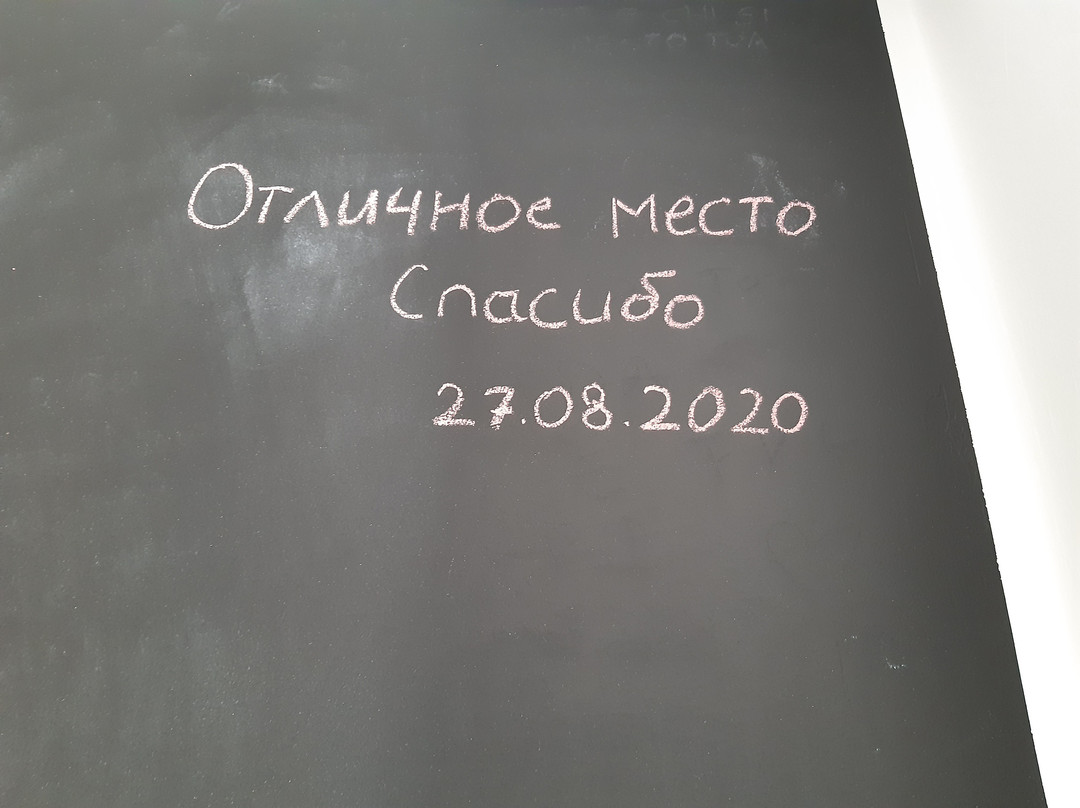 Отличное место
Спасибо
27.08.2020